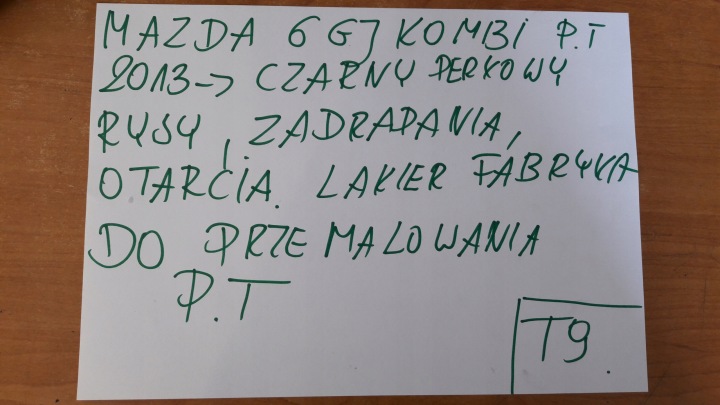 MAZDA 6 GJ KOMBI P.T
2013-> CZARNY PERŁOWY
RYSY, ZADRAPANIA,
OTARCIA. LAKIER FABRYKA
DO PRZEMALOWANIA
P.T
T9.